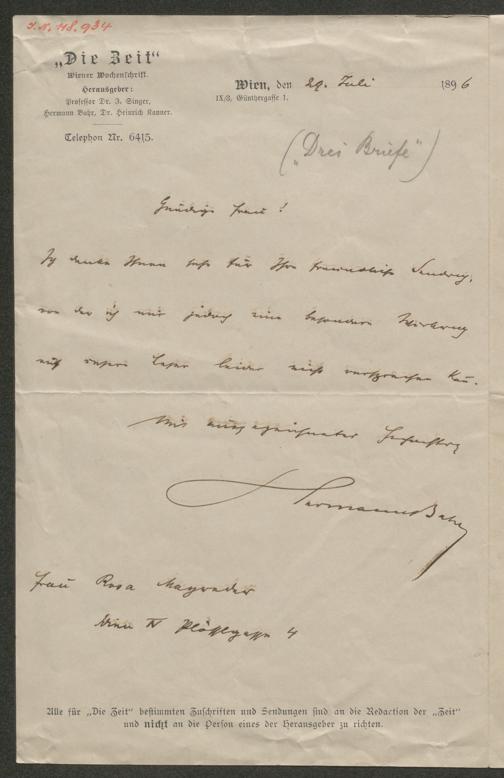 J.N. 118.934
„Die Zeit“
Wiener Wochenschrift.
Herausgeber:
Professor Dr. J. Singer,
Hermann Bahr, Dr. Heinrich Kanner.
Telephon Nr. 6415.
Wien, den 29. Juli 1896
IX/3, Günthergasse 1.
(„Drei Briefe“)
Gnädige Frau!
Ich danke Ihnen sehr für Ihre freundliche Sendung,
von der ich mir jedoch eine besondere Wirkung
auf unsere Leser leider nicht versprechen kann.
Mit ausgezeichneter Hochachtung
Hermann Bahr
Frau Rosa Mayreder
Wien IV Plößlgasse 4
Alle für „Die Zeit“ bestimmten Zuschriften und Sendungen sind an die Redaction der „Zeit“
und nicht an die Person eines der Herausgeber zu richten.